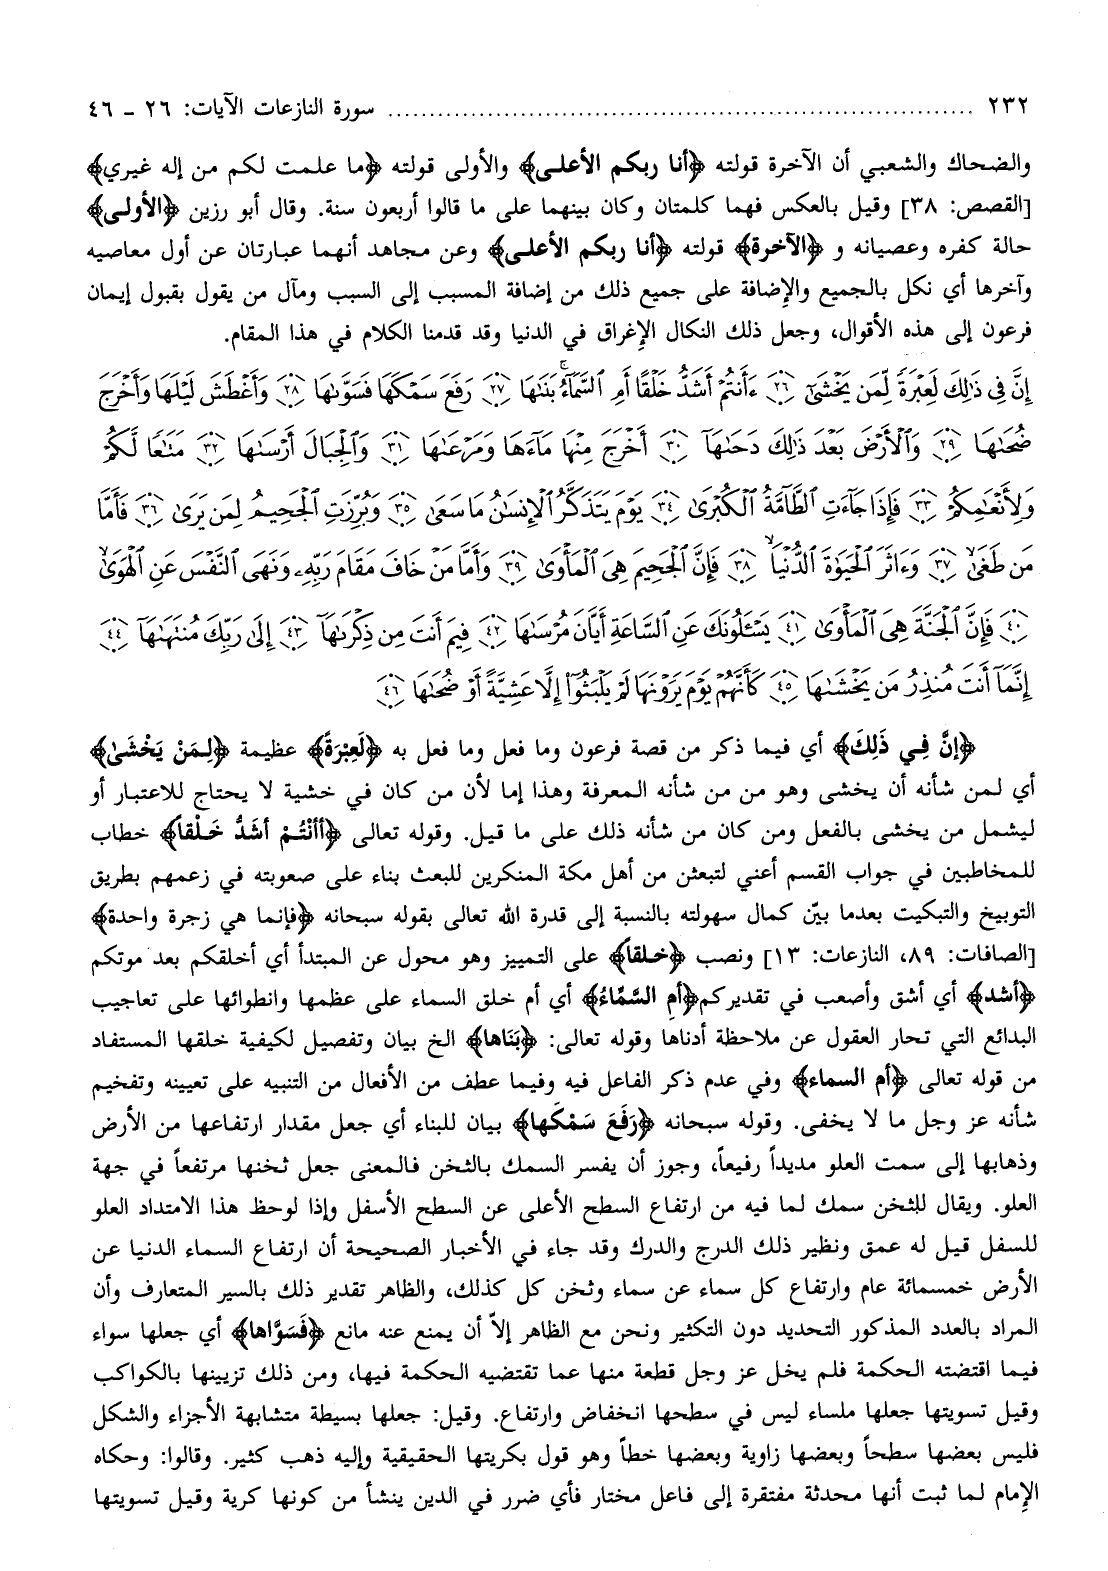 ٢٣٢ ........................................................................ سورة النازعات الآيات: ٢٦ ـ ٤٦
والضحاك والشعبي أن الآخرة قولته ﴿أنا ربكم الأعلى﴾ والأولى قولته ﴿ما علمت لكم من إله غيري﴾
[القصص: ٣٨] وقيل بالعكس فهما كلمتان وكان بينهما على ما قالوا أربعون سنة. وقال أبو رزين ﴿الأولى﴾
حالة كفره وعصيانه و ﴿الآخرة﴾ قولته ﴿أنا ربكم الأعلى﴾ وعن مجاهد أنهما عبارتان عن أول معاصيه
وآخرها أي نكل بالجميع والإضافة على جميع ذلك من إضافة المسبب إلى السبب ومآل من يقول بقبول إيمان
فرعون إلى هذه الأقوال، وجعل ذلك النكال الإغراق في الدنيا وقد قدمنا الكلام في هذا المقام.
إِنَّ فِي ذَٰلِكَ لَعِبْرَةً لِّمَن يَخْشَىٰٓ ﴿٢٦﴾ ءَأَنتُمْ أَشَدُّ خَلْقًا أَمِ ٱلسَّمَآءُ ۚ بَنَىٰهَا ﴿٢٧﴾ رَفَعَ سَمْكَهَا فَسَوَّىٰهَا ﴿٢٨﴾ وَأَغْطَشَ لَيْلَهَا وَأَخْرَجَ
ضُحَىٰهَا ﴿٢٩﴾ وَٱلْأَرْضَ بَعْدَ ذَٰلِكَ دَحَىٰهَآ ﴿٣٠﴾ أَخْرَجَ مِنْهَا مَآءَهَا وَمَرْعَىٰهَا ﴿٣١﴾ وَٱلْجِبَالَ أَرْسَىٰهَا ﴿٣٢﴾ مَتَٰعًا لَّكُمْ
وَلِأَنْعَٰمِكُمْ ﴿٣٣﴾ فَإِذَا جَآءَتِ ٱلطَّآمَّةُ ٱلْكُبْرَىٰ ﴿٣٤﴾ يَوْمَ يَتَذَكَّرُ ٱلْإِنسَٰنُ مَا سَعَىٰ ﴿٣٥﴾ وَبُرِّزَتِ ٱلْجَحِيمُ لِمَن يَرَىٰ ﴿٣٦﴾ فَأَمَّا
مَن طَغَىٰ ﴿٣٧﴾ وَءَاثَرَ ٱلْحَيَوٰةَ ٱلدُّنْيَا ﴿٣٨﴾ فَإِنَّ ٱلْجَحِيمَ هِيَ ٱلْمَأْوَىٰ ﴿٣٩﴾ وَأَمَّا مَنْ خَافَ مَقَامَ رَبِّهِۦ وَنَهَى ٱلنَّفْسَ عَنِ ٱلْهَوَىٰ
﴿٤٠﴾ فَإِنَّ ٱلْجَنَّةَ هِيَ ٱلْمَأْوَىٰ ﴿٤١﴾ يَسْـَٔلُونَكَ عَنِ ٱلسَّاعَةِ أَيَّانَ مُرْسَىٰهَا ﴿٤٢﴾ فِيمَ أَنتَ مِن ذِكْرَىٰهَآ ﴿٤٣﴾ إِلَىٰ رَبِّكَ مُنتَهَىٰهَآ ﴿٤٤﴾
إِنَّمَآ أَنتَ مُنذِرُ مَن يَخْشَىٰهَا ﴿٤٥﴾ كَأَنَّهُمْ يَوْمَ يَرَوْنَهَا لَمْ يَلْبَثُوٓا۟ إِلَّا عَشِيَّةً أَوْ ضُحَىٰهَا ﴿٤٦﴾
﴿إِنَّ فِي ذَلِكَ﴾ أي فيما ذكر من قصة فرعون وما فعل وما فعل به ﴿لَعِبْرَةً﴾ عظيمة ﴿لِمَنْ يَخْشَىٰ﴾
أي لمن شأنه أن يخشى وهو من من شأنه المعرفة وهذا إما لأن من كان في خشية لا يحتاج للاعتبار أو
ليشمل من يخشى بالفعل ومن كان من شأنه ذلك على ما قيل. وقوله تعالى ﴿أَأَنْتُمْ أَشَدُّ خَلْقاً﴾ خطاب
للمخاطبين في جواب القسم أعني لتبعثن من أهل مكة المنكرين للبعث بناء على صعوبته في زعمهم بطريق
التوبيخ والتبكيت بعدما بيّن كمال سهولته بالنسبة إلى قدرة الله تعالى بقوله سبحانه ﴿فإنما هي زجرة واحدة﴾
[الصافات: ٨٩، النازعات: ١٣] ونصب ﴿خلقاً﴾ على التمييز وهو محول عن المبتدأ أي أخلقكم بعد موتكم
﴿أشد﴾ أي أشق وأصعب في تقديركم﴿أَمِ السَّمَاءُ﴾ أي أم خلق السماء على عظمها وانطوائها على تعاجيب
البدائع التي تحار العقول عن ملاحظة أدناها وقوله تعالى: ﴿بَنَاها﴾ الخ بيان وتفصيل لكيفية خلقها المستفاد
من قوله تعالى ﴿أم السماء﴾ وفي عدم ذكر الفاعل فيه وفيما عطف من الأفعال من التنبيه على تعيينه وتفخيم
شأنه عز وجل ما لا يخفى. وقوله سبحانه ﴿رَفَعَ سَمْكَها﴾ بيان للبناء أي جعل مقدار ارتفاعها من الأرض
وذهابها إلى سمت العلو مديداً رفيعاً، وجوز أن يفسر السمك بالثخن فالمعنى جعل ثخنها مرتفعاً في جهة
العلو. ويقال للثخن سمك لما فيه من ارتفاع السطح الأعلى عن السطح الأسفل وإذا لوحظ هذا الامتداد العلو
للسفل قيل له عمق ونظير ذلك الدرج والدرك وقد جاء في الأخبار الصحيحة أن ارتفاع السماء الدنيا عن
الأرض خمسمائة عام وارتفاع كل سماء عن سماء وثخن كل كذلك، والظاهر تقدير ذلك بالسير المتعارف وأن
المراد بالعدد المذكور التحديد دون التكثير ونحن مع الظاهر إلاّ أن يمنع عنه مانع ﴿فَسَوَّاها﴾ أي جعلها سواء
فيما اقتضته الحكمة فلم يخل عز وجل قطعة منها عما تقتضيه الحكمة فيها، ومن ذلك تزيينها بالكواكب
وقيل تسويتها جعلها ملساء ليس في سطحها انخفاض وارتفاع. وقيل: جعلها بسيطة متشابهة الأجزاء والشكل
فليس بعضها سطحاً وبعضها زاوية وبعضها خطاً وهو قول بكريتها الحقيقية وإليه ذهب كثير. وقالوا: وحكاه
الإمام لما ثبت أنها محدثة مفتقرة إلى فاعل مختار فأي ضرر في الدين ينشأ من كونها كرية وقيل تسويتها